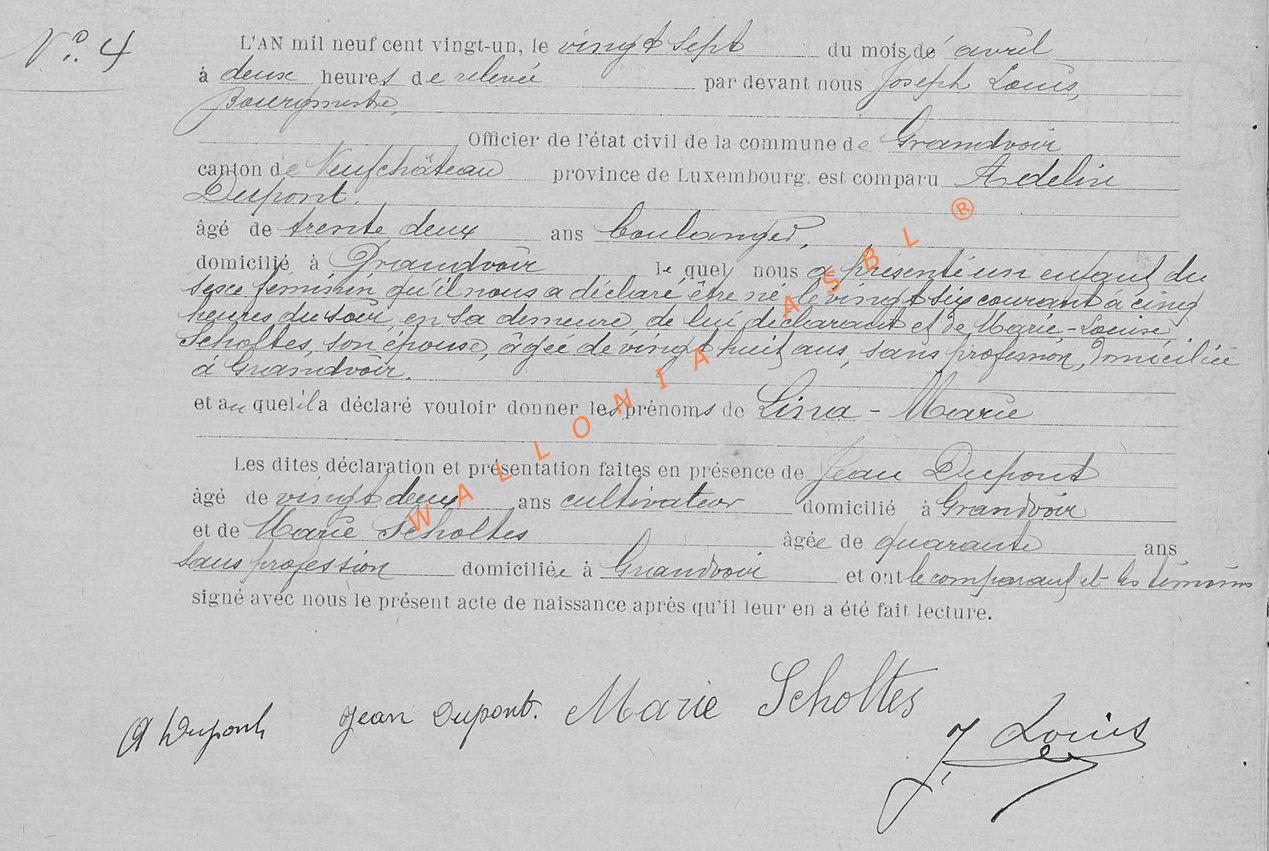 N°. 4
L'AN mil neuf cent vingt-un, le vingt sept du mois de avril
à deux heures de relevée par devant nous Joseph Louis,
Bourgmestre,
Officier de l'état civil de la commune de Grandvoir
canton de Neufchâteau province de Luxembourg, est comparu Adelin
Dupont.
âgé de trente deux ans boulanger,
domicilié à Grandvoir le quel nous a présenté un enfant du
sexe féminin, qu'il nous a déclaré être né, le vingt six courant à cinq
heures du soir, en sa demeure, de lui déclarant et de Marie-Louise
Scholtes, son épouse, âgée de vingt huit ans, sans profession, domiciliée
à Grandvoir.
et au quel il a déclaré vouloir donner les prénoms de Lina - Marie
Les dites déclaration et présentation faites en présence de Jean Dupont
âgé de vingt deux ans cultivateur domicilié à Grandvoir
et de Marie Scholtes âgée de quarante ans
sans profession domiciliée à Grandvoir et ont le comparant et les témoins
signé avec nous le présent acte de naissance après qu'il leur en a été fait lecture.
A Dupont Jean Dupont. Marie Scholtes
J. Louis
WALLONIA ASBL ®